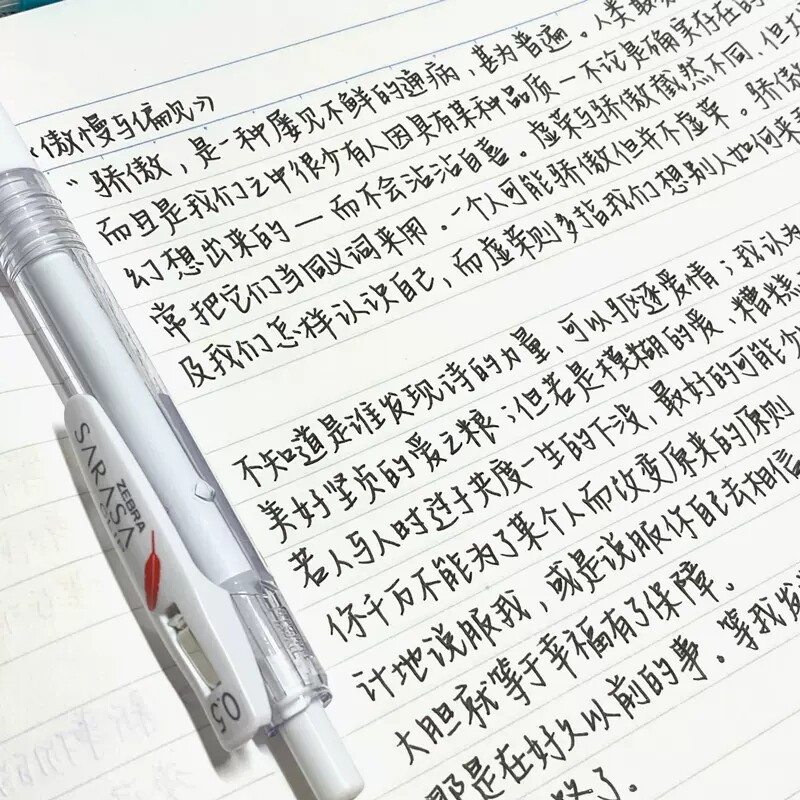 《傲慢与偏见》
"骄傲，是一种屡见不鲜的通病，甚为普遍。人类
而且是我们之中很少有人因具有某种品质一不论是确实存在的
幻想出来的一而不会沾沾自喜。虚荣与骄傲截然不同，但
常把它们当同义词来用。一个人可能骄傲但并不虚荣。骄傲
及我们怎样认识自己，而虚荣则多指我们想别人如何来
不知道是谁发现诗的力量，可以驱逐爱情；我认为
美好坚贞的爱之粮；但若是模糊的爱，糟糕
若人与人时过于共度一生的下没，最好的可能
你千万不能为了某个人而改变原来的原则
计地说服我，或是说服你自己去相信
大胆就等于幸福有了保障。
那是在好久以前的事。等我发
了。
SARASA
ZEBRA
0.5